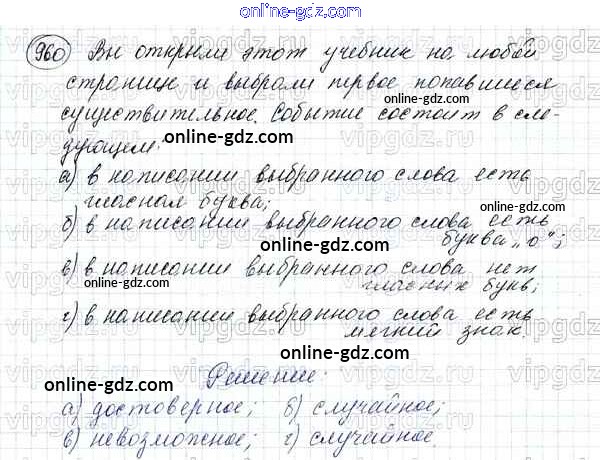 online-gdz.com
960 Вы открыли этот учебник на любой
странице и выбрали первое попавшееся
online-gdz.com
существительное. Событие состоит в сле-
online-gdz.com
дующем:
а) в написании выбранного слова есть
гласная буква;
online-gdz.com
online-gdz.com
б) в написании выбранного слова есть
буква „о";
online-gdz.com
в) в написании выбранного слова нет
гласных букв;
online-gdz.com
online-gdz.com
г) в написании выбранного слова есть
мягкий знак.
online-gdz.com
Решение:
online-gdz.com
а) достоверное; б) случайное;
в) невозможное; г) случайное.
online-gdz.com